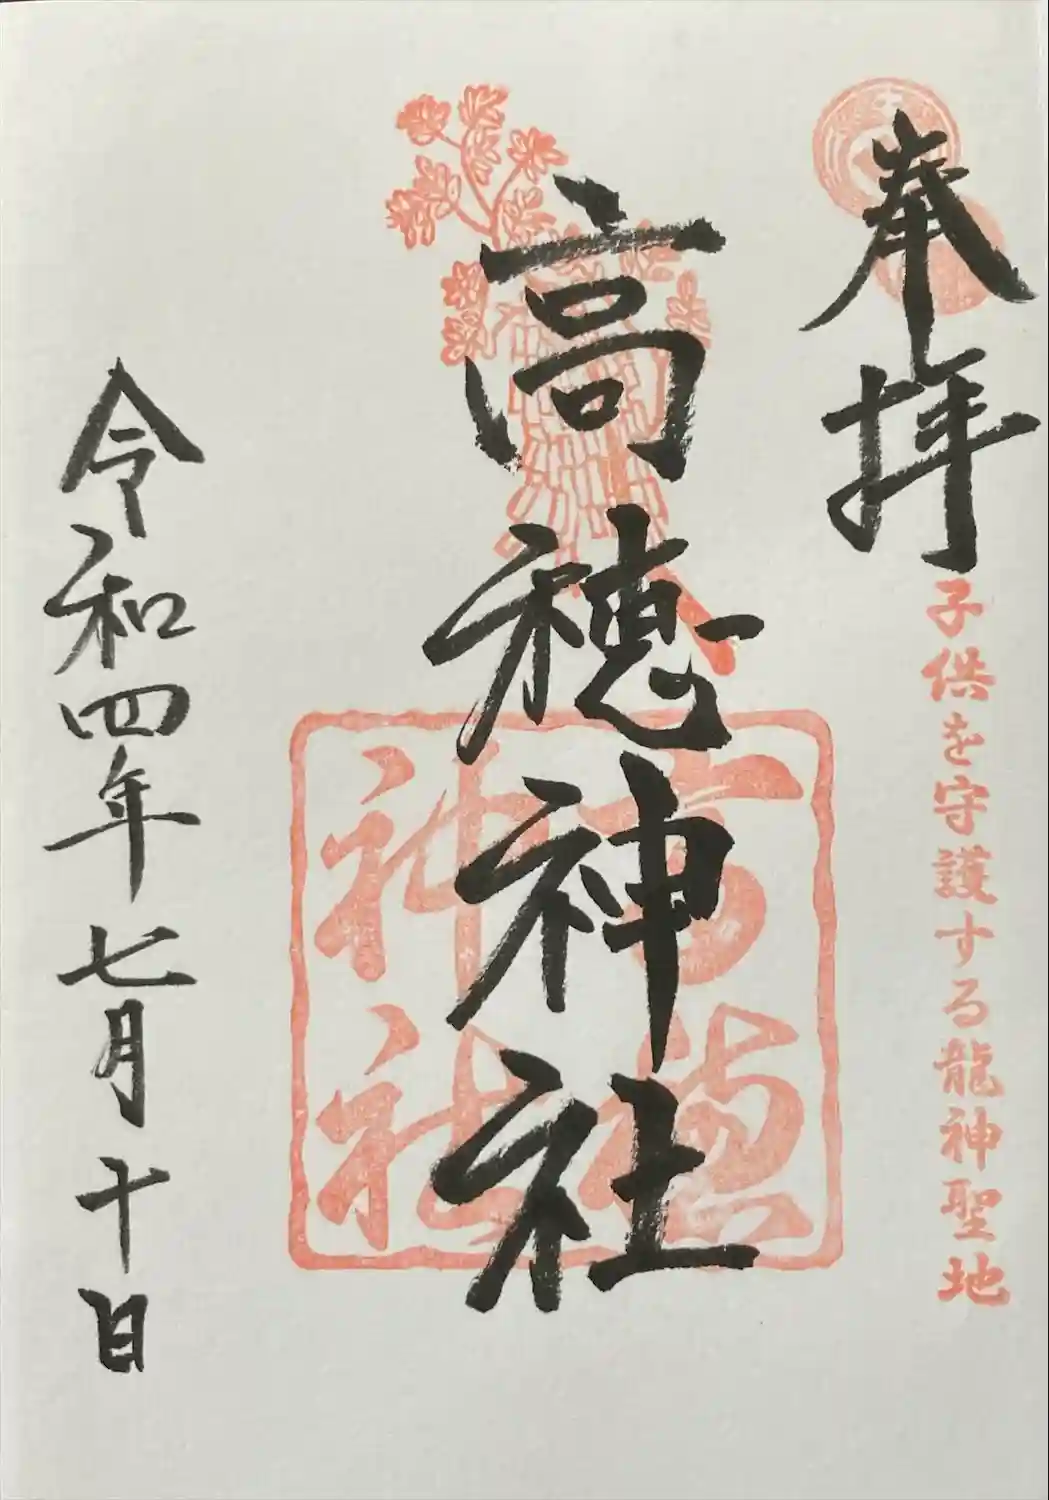 奉拝
子供を守護する龍神聖地
高穂神社
高穂
神社
令和四年七月十日